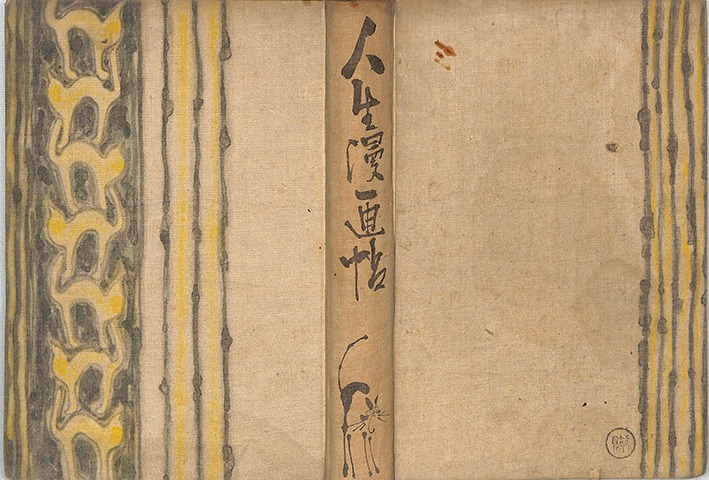 人生漫画帖